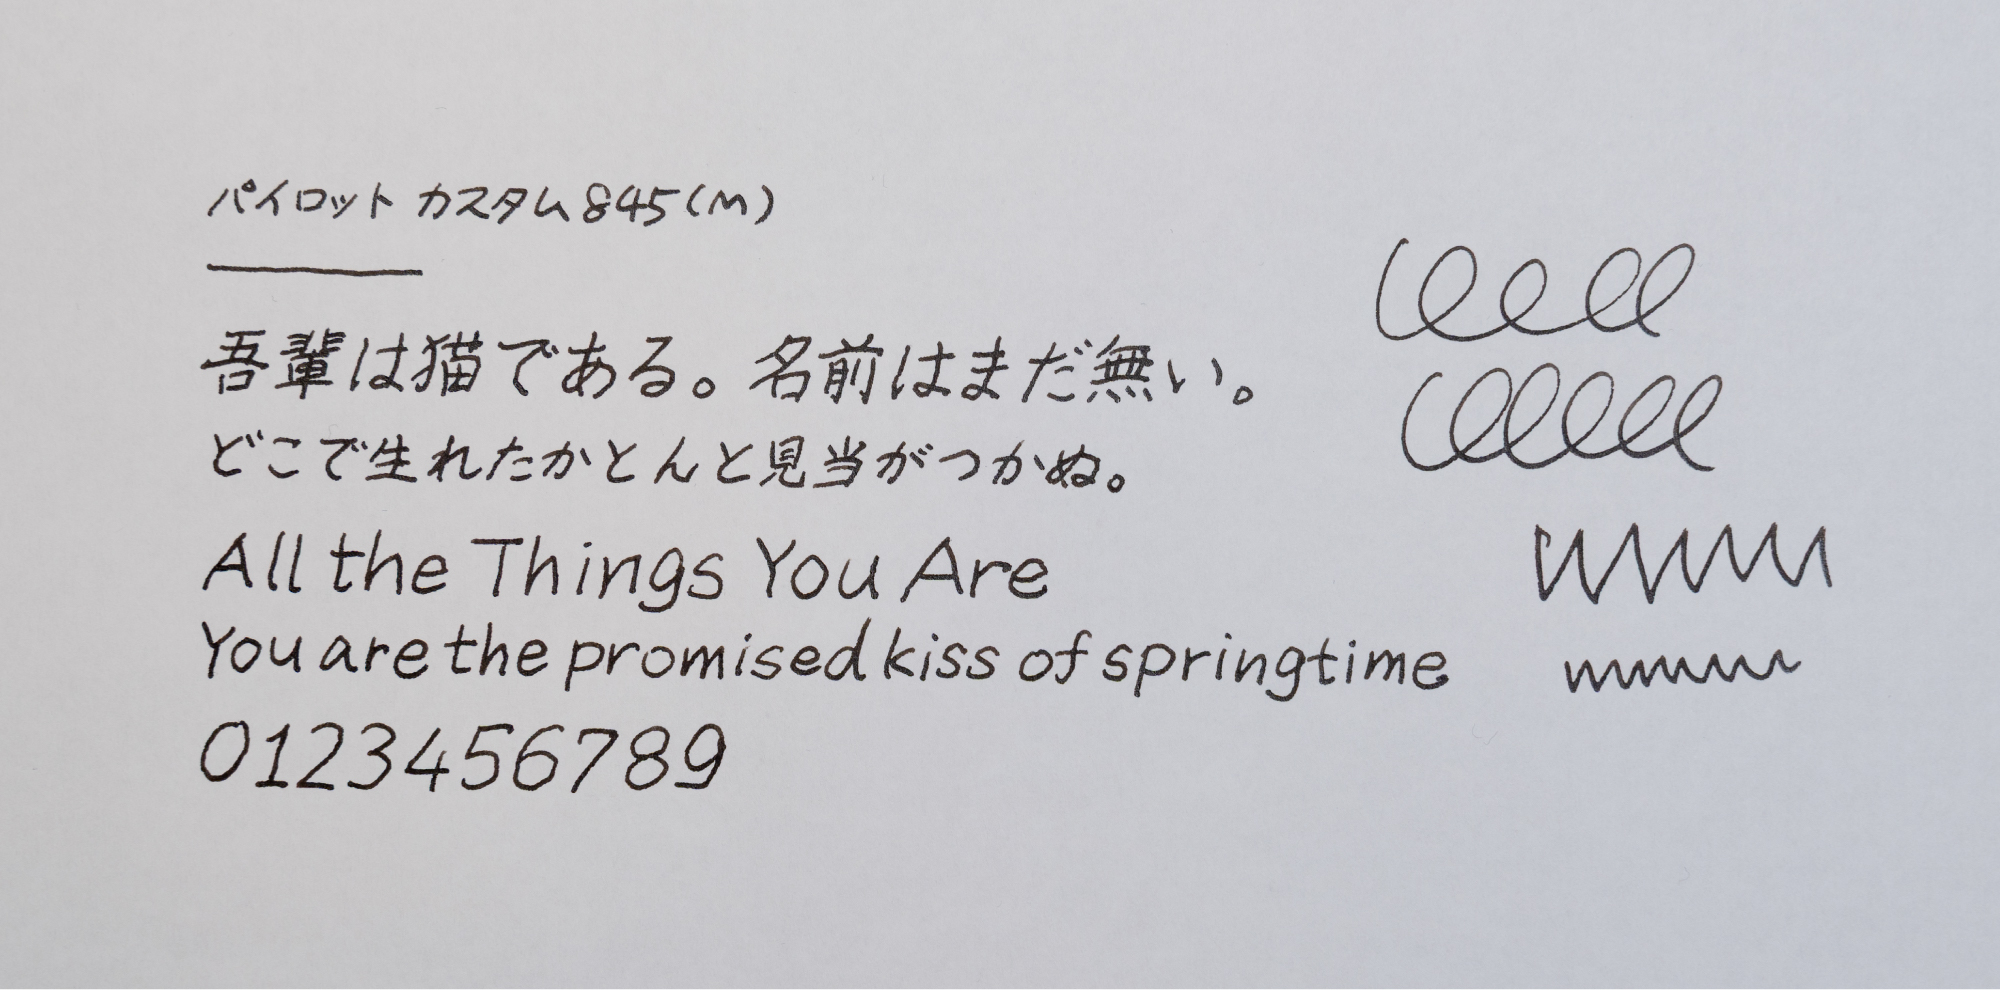 パイロット カスタム845(M)
吾輩は猫である。名前はまだ無い。
どこで生れたかとんと見当がつかぬ。
All the Things You Are
You are the promised kiss of springtime
0123456789